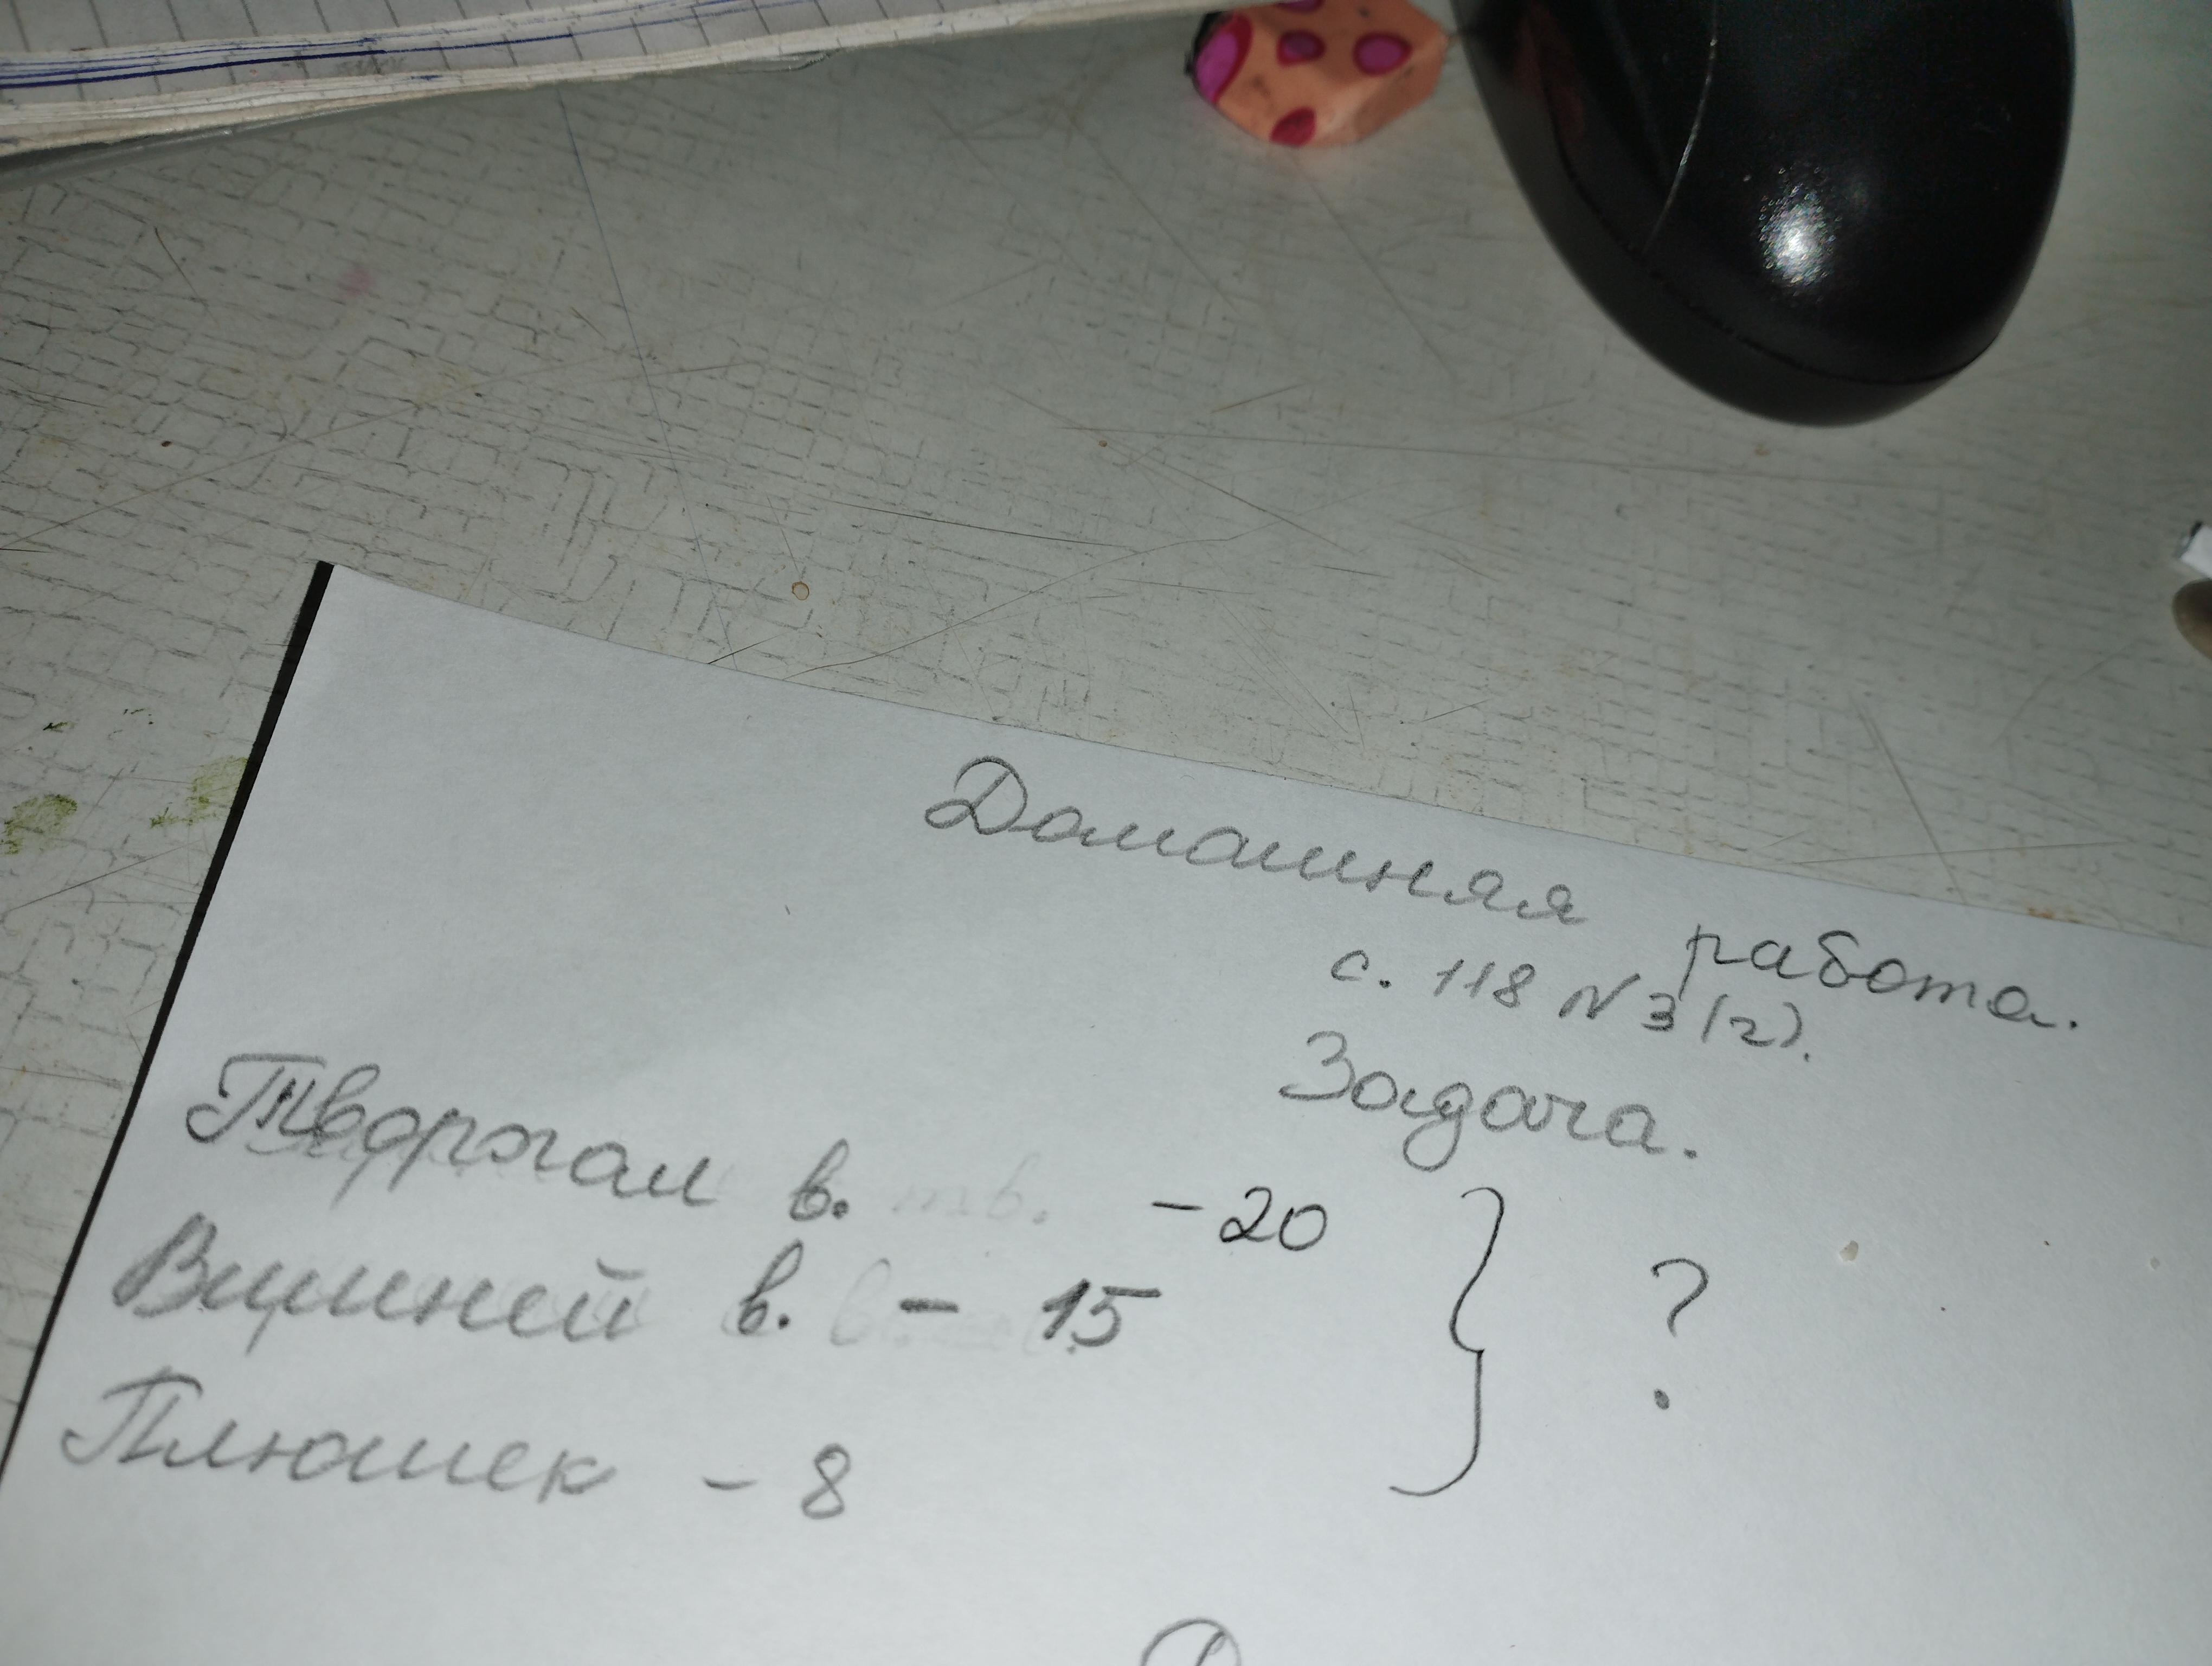 Домашняя работа.
с. 118 № 3 (2).
Задача.
Творогом в. - 20
Вишней в. - 15
Плюшек - 8
?